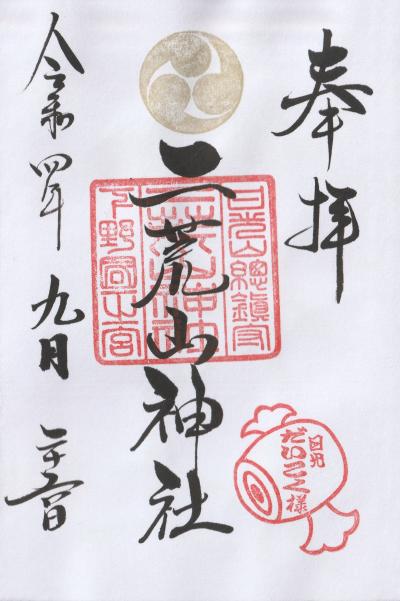 奉拝
二荒山神社
日光山總鎮守
二荒山神社
下野國一之宮
日光
だいこく様
令和四年九月二十六日